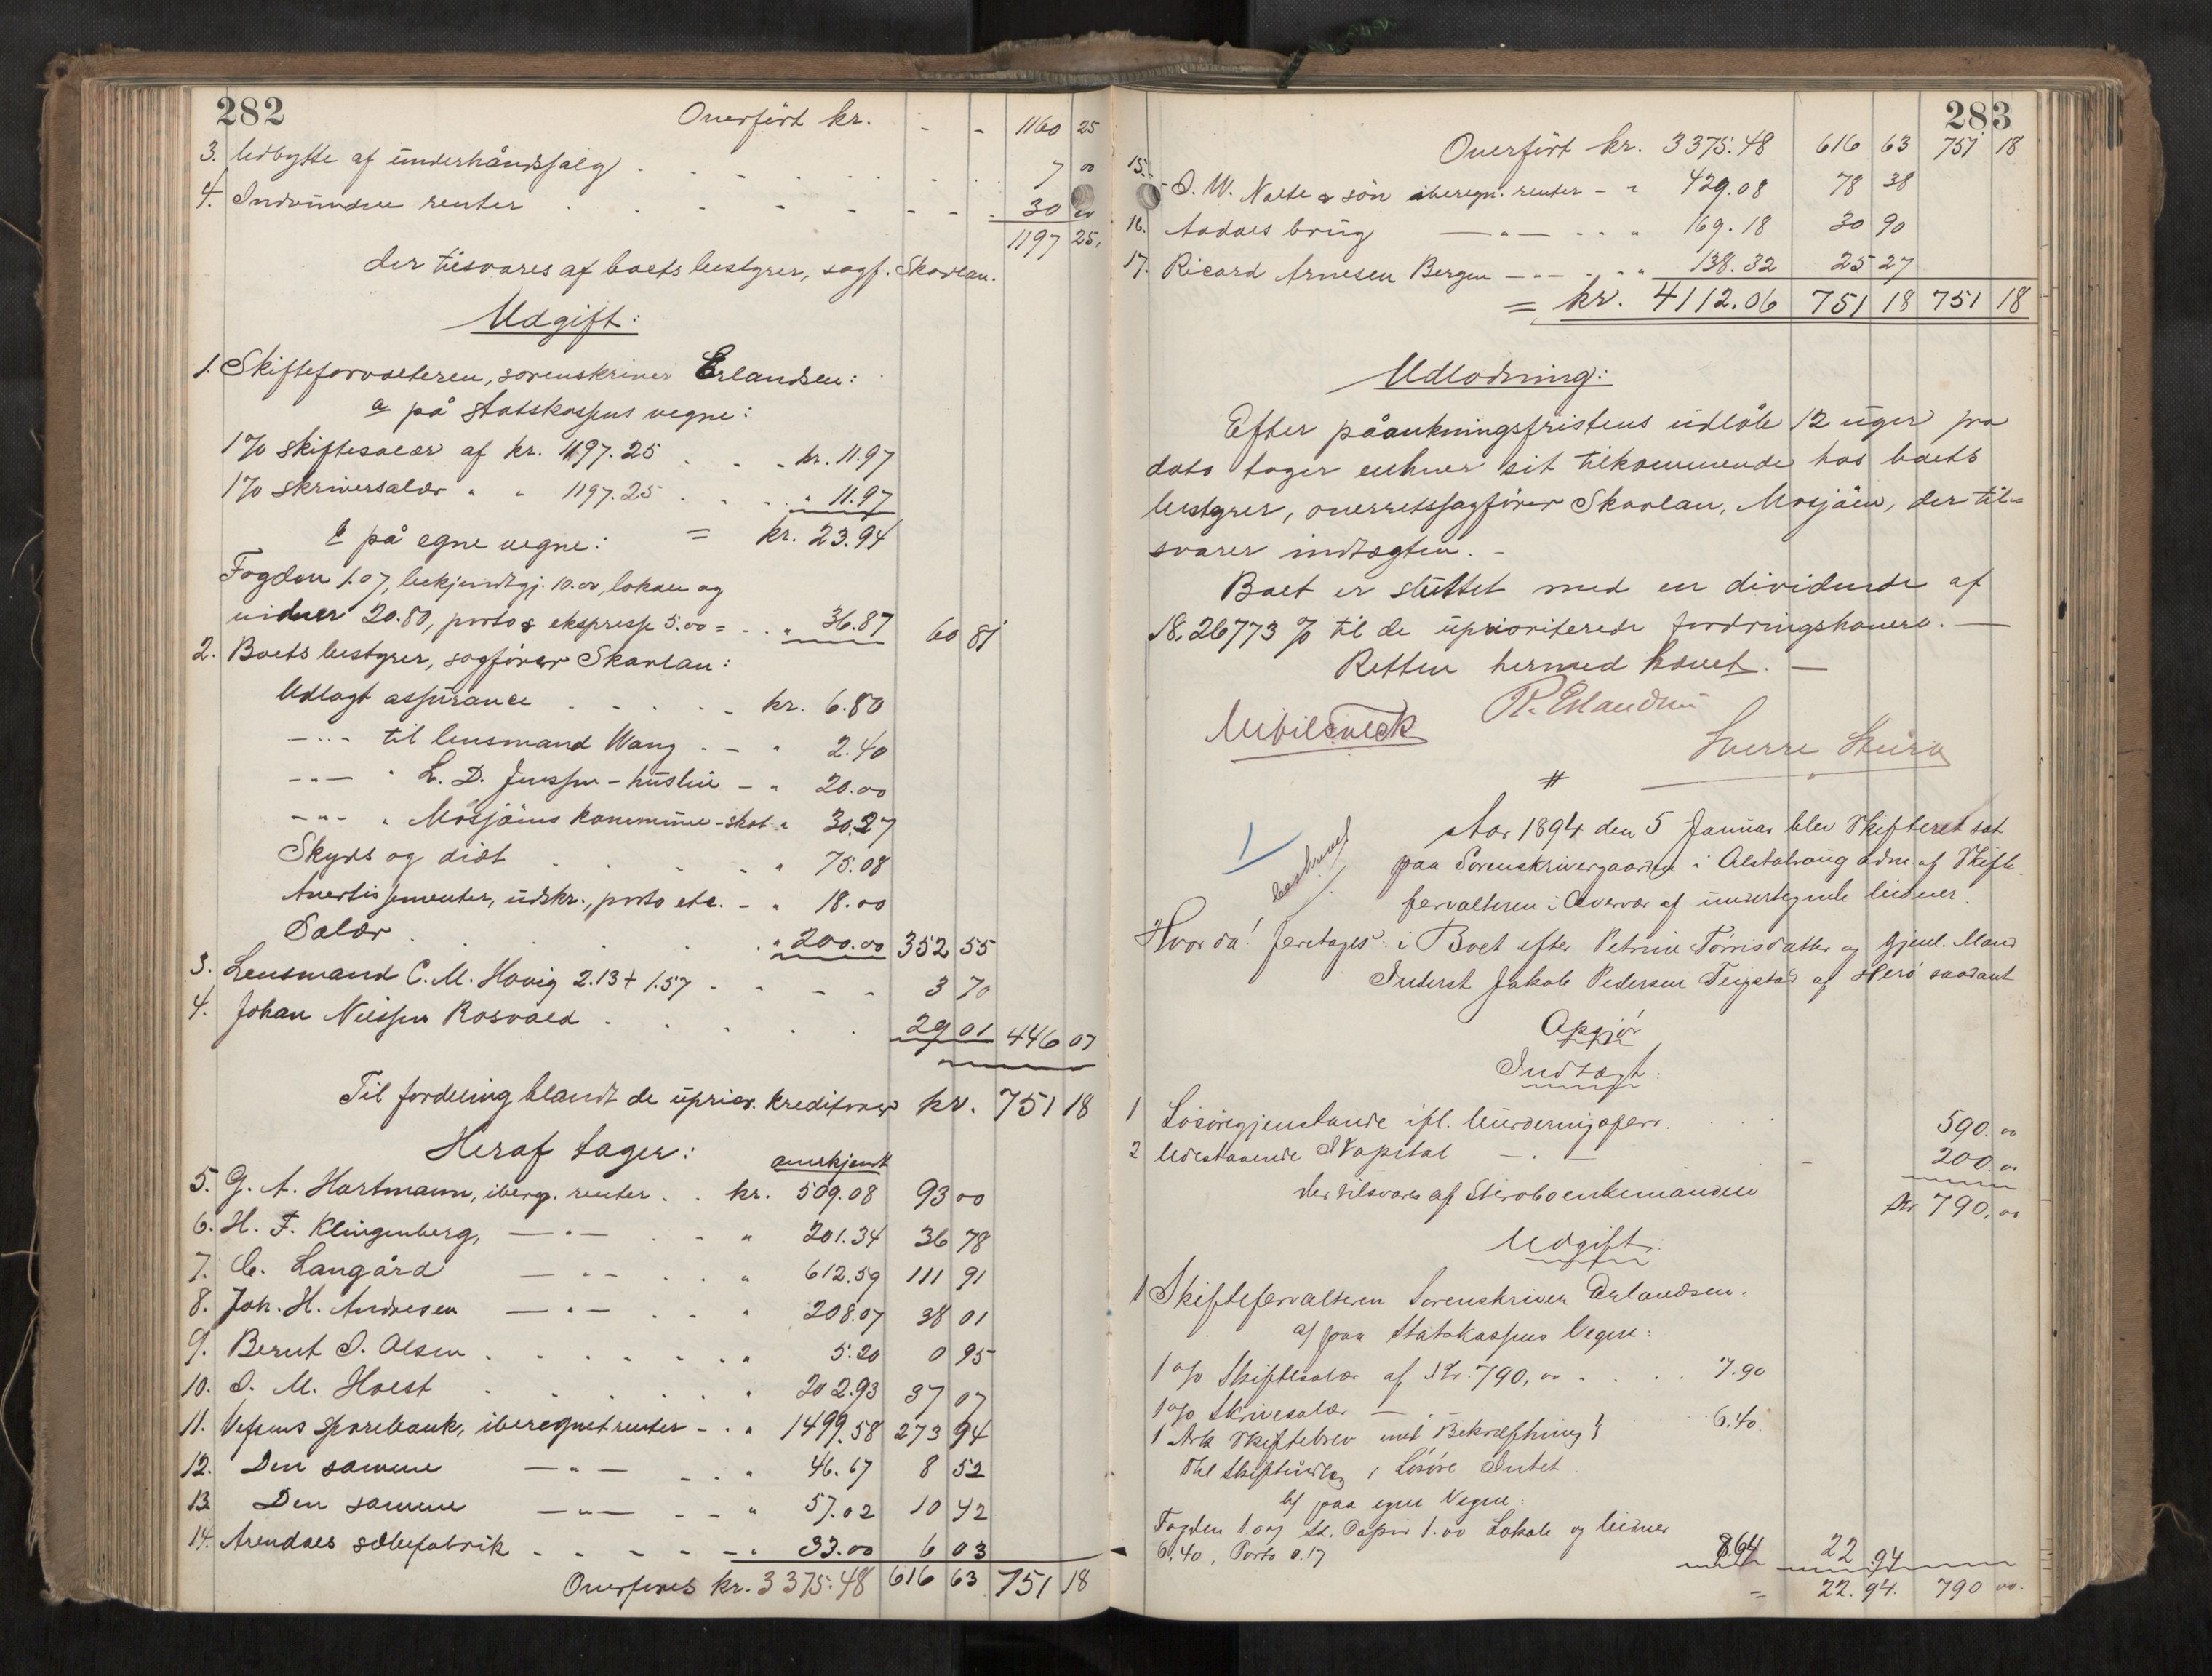 282
Overført kr. - - 1160 25
3. Udbytte af underhåndssalg . . . . . 7 00
4. Indvundne renter . . . . . 30 00
1197 25.
der tilsvares af boets bestyrer, sagf. Skarlan.
Udgift:
1. Skifteforvalteren, sorenskriver Erlandsen:
a på statskassens vegne:
1% skiftesalær af kr. 1197.25 . . - kr. 11.97
1% skriversalær " " 1197.25 . . . " 11.97
b på egne vegne: = kr. 23.94
Fogden 1.07, bekjendtgj. 10.00, lokale og
vidner 20.80, porto & ekspresse 5.00 = - . " 36.87 60 81
2. Boets bestyrer, sagfører Skarlan:
Udlagt assurance . . . . - kr. 6.80
- " - til lensmand Wang . - " 2.40
- " - " L. D. Jenssen - husleie - " 20.00
- " - " Mosjøens kommune - skat " 30.27
Skyds og diæt . . . . - " 75.08
Avertissementer, udskr., porto etc. - " 18.00
Salær . . . . . " 200.00 352 55
3. Lensmand C. M. Havig 2.13 + 1.57 - - - - 3 70
4. Johan Nilssen Rosvold . . . . 29 01 446 07
Til fordeling blandt de uprior. kreditorer kr. 751 18
Heraf tager: anerkjendt
5. G. A. Hartmann, ibereg. renter . . kr. 509.08 93 00
6. H. F. Klingenberg, — " — . - " 201.34 36 78
7. C. Langård — " — . . " 612.59 111 91
8. Joh. H. Andresen — " — . - " 208.07 38 01
9. Bernt I. Olsen . . . . . . " 5.20 0 95
10. I. M. Holst . . . . . " 202.93 37 07
11. Vefsens sparebank, iberegnet renter - . " 1499.58 273 94
12. Den samme — " — - . " 46.67 8 52
13 Den samme — " — - - " 57.02 10 42
14. Arendals sæbefabrik - - - - - " 33.00 6 03
Overføres kr. 3375.48 616 63 751 18
283
Overført kr. 3375.48 616 63 751 18
15. I. W. Nolte & søn iberegn. renter - " 429.08 78 38
16. Aadals brug — " — - - " 169.18 30 90
17. Ricard Arnesen Bergen - - - " 138.32 25 27
= kr. 4112.06 751 18 751 18
Udlodning:
Efter påankningsfristens udløb 12 uger fra
dato tager enhver sit tilkommende hos boets
bestyrer, overretssagfører Skarlan, Mosjøen, der til-
svarer indtægten. -
Boet er sluttet med en dividende af
18,26773 % til de uprioriterede fordringshavere. —
Retten hermed hævet. —
R. Erlandsen
Sverre
#
Aar 1894 den 5 Januar blev Skifteret sat
paa Sorenskrivergaarden i Alstahaug adm af Skifte
forvalteren i Overvær af undertegnede Vidner.
beskrevet
Hvorda! foretages i Boet efter Petrine Tørrisdatter og gjenl. Mand
Inderst Jakob Pedersen Teigstad af Herø saadant
Opgjør
Indtægt:
1 Løsøregjenstande ifl. Vurderingsforr. . . 590.00
2 Udestaaende Kapital — . — - 200.00
der tilsvares af Stervboenkemanden Kr 790,00
Udgift:
1 Skifteforvalteren Sorenskriver Erlandsen.
a/ paa Statskassens Vegne:
1 o/o Skiftesalær af Kr. 790,00 . . . 7.90
1 o/o Skrivesalær — . —
1 Ark Skiftebrev med Bekræftning } 6.40.
Thl Skifteudlæg i Løsøre Intet.
b/ paa egne Vegne:
Fogden 1.07 St. Papir 1.00 Lokale og Vidner
6.40, Porto 0.17 8.64 22 94
= 22.94. 790 00.